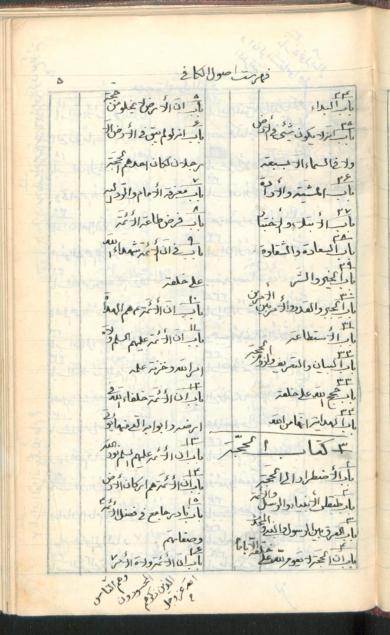 فهرست اصول الکافی
۵
۲۴ باب البداء
۲۵ باب انه لا یکون شیئ فی الارض
ولا فی السماء الا بسبعة
۲۶ باب المشیة والارادة
۲۷ باب الابتلاء والاختبار
۲۸ باب السعادة والشقاوة
۲۹ باب الخیر والشر
۳۰ باب الجبر والقدر والامر بین الامرین
۳۱ باب الاستطاعة
۳۲ باب البیان والتعریف ولزوم الحجة
۳۳ باب حجج الله علی خلقه
۳۴ باب الهدایة انها من الله
۳ کتاب الحجة
۱ باب الاضطرار الی الحجة
۲ باب طبقات الانبیاء والرسل والائمة
۳ باب الفرق بین الرسول والنبی والمحدث
۴ باب ان الحجة لا تقوم لله علی خلقه الا بامام
۵ باب ان الارض لا تخلو من حجة
۶ باب انه لو لم یبق فی الارض الا
رجلان لکان احدهما الحجة
۷ باب معرفة الامام والرد الیه
۸ باب فرض طاعة الائمة
۹ باب فی ان الائمة شهداء الله
علی خلقه
۱۰ باب ان الائمة هم الهداة
۱۱ باب ان الائمة علیهم السلم ولاة
امر الله وخزنة علمه
۱۲ باب ان الائمة خلفاء الله فی
ارضه وابوابه التی منها یؤتی
۱۳ باب ان الائمة علیهم السلم نور الله
۱۴ باب ان الائمة هم ارکان الارض
۱۵ باب نادر جامع فی فضل الامام
وصفاته
۱۶ باب ان الائمة ولاة الامر
وهم الناس
المحسودون
الذین ذکرهم
الله عز وجل